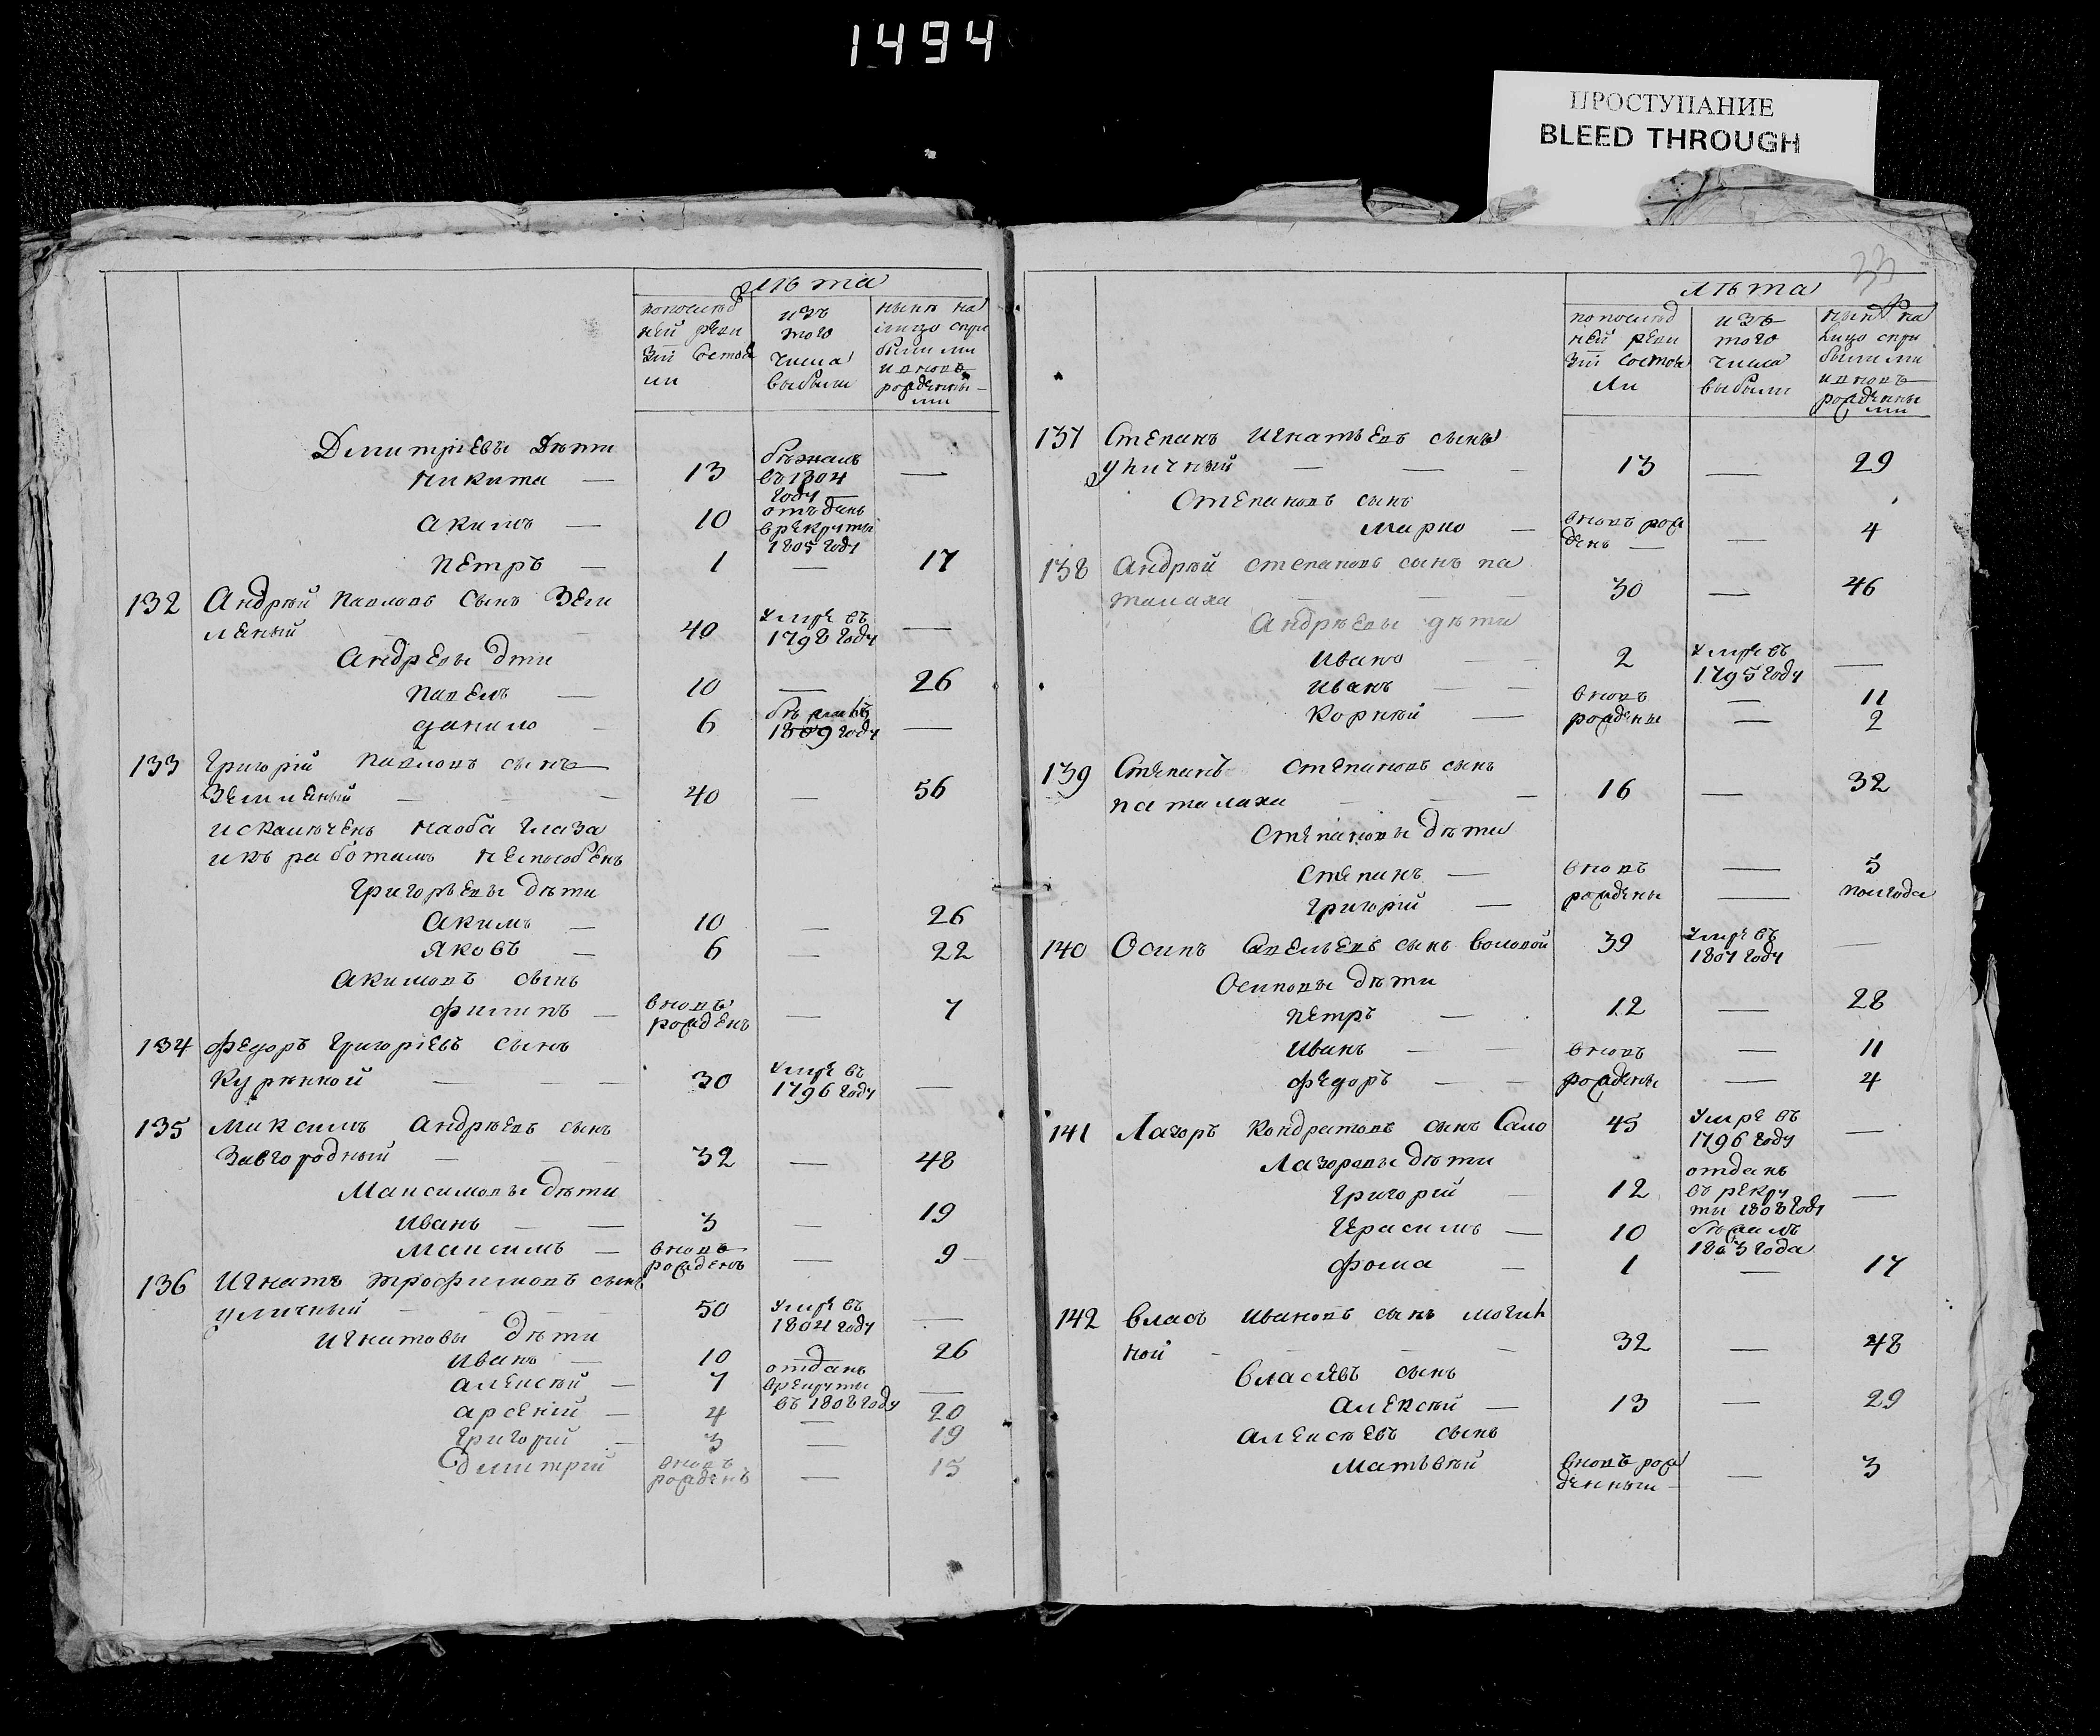 1494
ПРОСТУПАНИЕ
BLEED THROUGH
лѣта
попослѣд изъ нынѣ на
ней реви того лицо спри
зіи состоя числа былыми
ли выбыли ивновь
рожденны
ми
Дмитріевы дѣти
Никита — 13 бѣжалъ —
въ 1804
году —
Акимъ — 10 отъданъ
врекруты
1805 году
Петръ — 1 — 17
132 Андрѣй Павловъ сынъ Зели
леный 40 умре въ —
1798 году
Андревы дти
Павелъ — 10 — 26
Данило — 6 бѣжалъ —
1809 году
133 Григорій Павловъ сынъ
Зелиеный — — — 40 — 56
исключенъ наоба глаза
икъ работамъ неспособенъ
Григорьевы дѣти
Акимъ — 10 — 26
Яковъ — 6 — 22
Акимовъ сынъ
Филипъ — вновь — 7
рожденъ
134 Федоръ Григоріевъ сынъ
Курѣнной — — — 30 умре въ —
1796 году
135 Максимъ Андрѣевъ сынъ
Завгородный — — — 32 — 48
Максимовы дѣти
Иванъ — — 3 — 19
Максимъ — вновь — 9
рожденъ
136 Игнатъ Трофимовъ сынъ
уличный — — — 50 умре въ —
1804 году
Игнатовы дѣти
Иванъ — 10 — 26
Алексѣй — 7 отданъ —
врекруты
въ 1808 году
Арсеній — 4 — 20
Григорій — 3 — 19
Дмитрій вновь — 15
рожденъ
33
лѣта
попослѣд изъ нынѣ на
ней реви того лицо спри
зіи состоя числа былыми
ли выбыли ивновь
рожденны
ми
137 Степанъ Игнатьевъ сынъ
уличный — — — 13 — 29
Степановъ сынъ
Марко — вновь рож — 4
денъ —
138 Андрѣй Степановъ сынъ па
талаха — — — 30 — 46
Андрѣевы дѣти
Иванъ — 2 умре въ —
1795 году
Иванъ — — вновь — 11
Корнѣй — рождены — 2
139 Степанъ Степановъ сынъ
паталаха — — — 16 — 32
Степановы дѣти
Степанъ — вновь — 5
Григорій — рождены — полгода
140 Осипъ Савельевъ сынъ Воловой 39 умре въ —
1807 году
Осиповы дѣти
Петръ — 12 — 28
Иванъ — — вновь — 11
Федоръ — — рождены — 4
141 Лазоръ Кондратовъ сынъ Сало 45 умре въ —
1796 году
Лазоровы дѣти
Григорій — 12 отданъ —
въ рекру
ты 1808 году
Герасимъ — 10 бѣжалъ
1803 года
Фома — 1 — 17
142 Власъ Ивановъ сынъ могил
ной — — — 32 — 48
Власіевъ сынъ
Алексѣй — 13 — 29
Алексѣевъ сынъ
Матьвѣй вновь рож — 3
денныи —